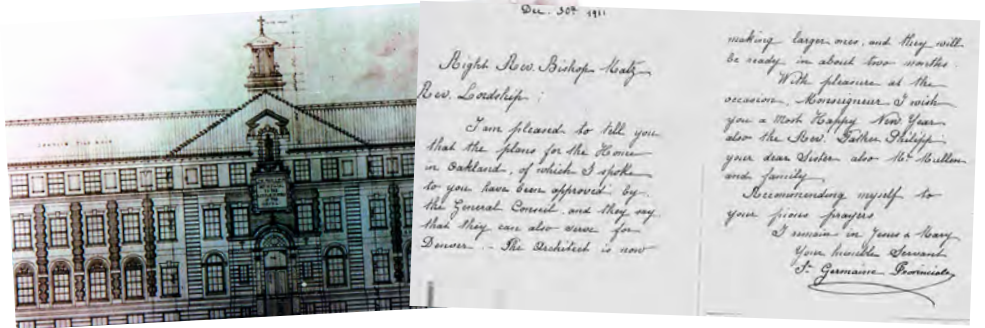 Dec. 30th 1911
Right Rev. Bishop Matz
Rev. Lordship;
I am pleased to tell you
that the plans for the Home
in Oakland, of which I spoke
to you have been approved by
the General Conseil and they say
that they can also serve for
Denver. The Architect is now
making larger ones, and they will
be ready in about two months.
With pleasure at the
occasion, Monseigneur I wish
you a Most Happy New Year
also the Rev. Father Philippi
your dear Sister also Mr Mullen
and family
Recommending myself to
your pious prayers
I remain in Jesus & Mary
Your humble Servant
Sr Germaine Provinciale